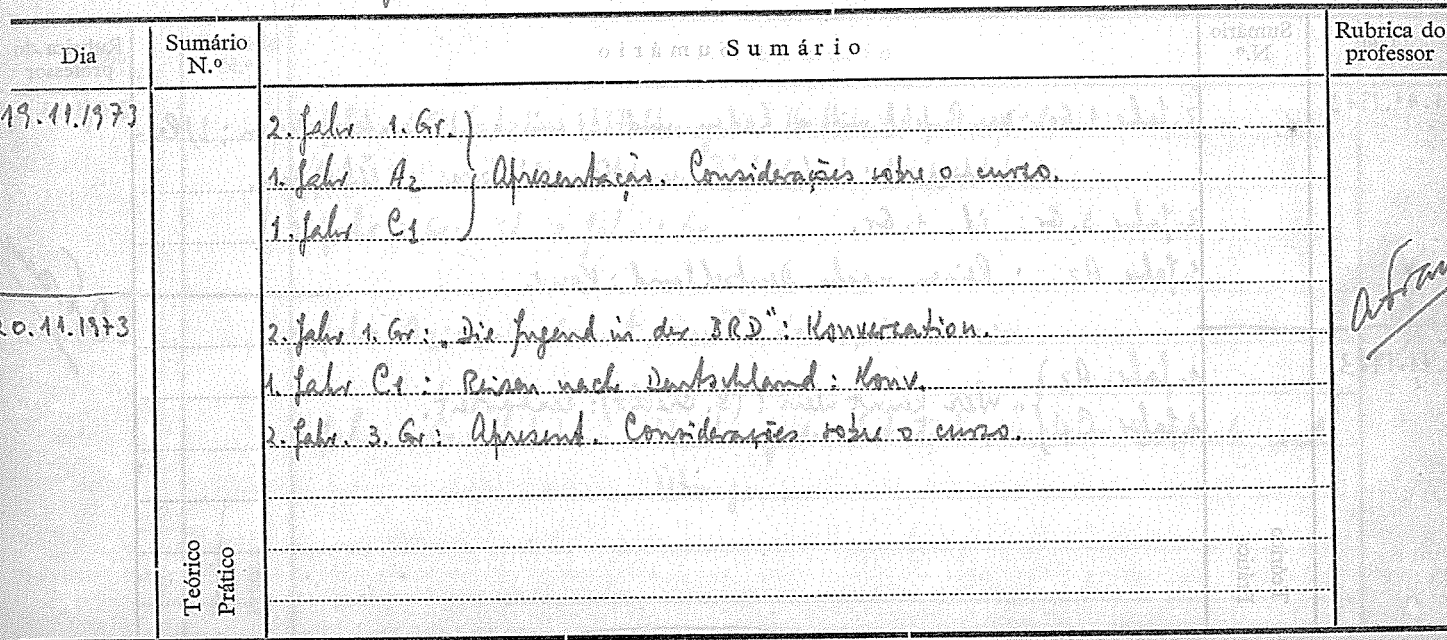 Dia Sumário N.º Sumário Rubrica do professor
19.11.1973 2. Jahr 1. Gr.
1. Jahr A2 } Apresentação. Considerações sobre o curso.
1. Jahr C1
20.11.1973 2. Jahr 1. Gr: „Die Jugend in der BRD": Konversation.
1. Jahr C1: Reisen nach Deutschland: Konv.
2. Jahr. 3. Gr: Apresent. Considerações sobre o curso.
Teórico
Prático